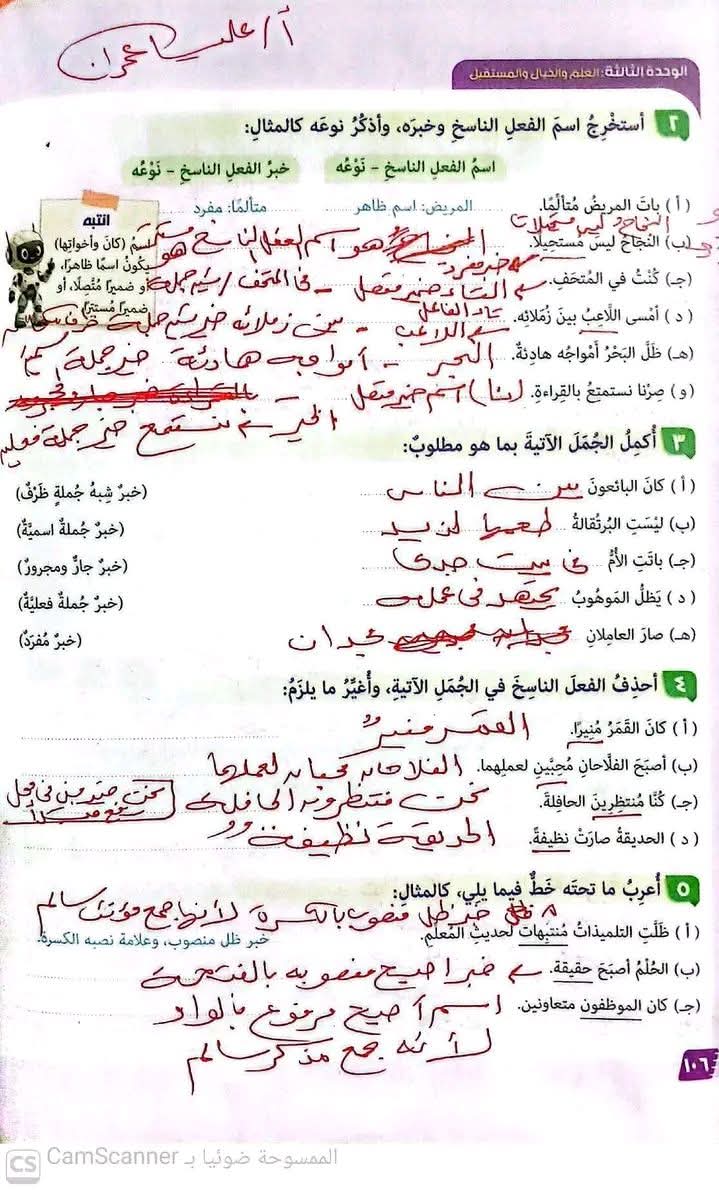 أ/ علياء عمران
الوحدة الثالثة: العلم والخيال والمستقبل
٢ أستخْرِجُ اسمَ الفعلِ الناسخِ وخبرَه، وأذكُرُ نوعَه كالمثالِ:
اسمُ الفعلِ الناسخِ – نَوْعُه خبرُ الفعلِ الناسخِ – نَوْعُه
(أ) باتَ المريضُ مُتألِّمًا. المريض: اسم ظاهر متألمًا: مفرد
(ب) النجَاحُ ليسَ مُستحيلًا. هو اسم الفعل الناسخ هو
خبر مفرد
(جـ) كُنْتُ في المُتحَفِ. التاء ضمير متصل - في المتحف / شبه جملة
تاء الفاعل
(د) أمْسى اللَّاعِبُ بينَ زُملائِه. اسم اللاعب - بين زملائه خبر شبه جملة ظرف
(هـ) ظَلَّ البَحْرُ أمْواجُه هادِئةٌ. البحر - أمواجه هادئة خبر جملة اسمية
(و) صِرْنا نستمتِعُ بالقِراءةِ. (نا) اسم ضمير متصل
الخبر نستمتع خبر جملة فعلية
انتبه
اسمُ (كانَ وأخواتِها)
يكونُ اسمًا ظاهرًا،
أو ضميرًا مُتَّصلًا، أو
ضميرًا مُستترًا.
٣ أُكمِلُ الجُمَلَ الآتيةَ بما هو مطلوبٌ:
(أ) كانَ البائعونَ بين الناس (خبرٌ شِبهُ جُملةٍ ظَرْفٌ)
(ب) ليْسَتِ البُرتُقالةُ طعمها لذيذ (خبرٌ جُملةٌ اسميَّةٌ)
(جـ) باتَتِ الأُمُّ في بيت جدي (خبرٌ جارٌّ ومجرورٌ)
(د) يَظلُّ المَوهُوبُ يجتهد في عمله (خبرٌ جُملةٌ فعليَّةٌ)
(هـ) صارَ العامِلانِ مجدان (خبرٌ مُفرَدٌ)
٤ أحذِفُ الفعلَ الناسِخَ في الجُمَلِ الآتيةِ، وأُغيِّرُ ما يلزَمُ:
(أ) كانَ القَمَرُ مُنِيرًا. القمر منيرٌ
(ب) أصبَحَ الفلَّاحانِ مُحِبَّيْنِ لعملِهما. الفلاحان محبان لعملهما
(جـ) كُنَّا مُنتظِرينَ الحافِلةَ. نحن منتظرون الحافلة
نحن ضمير مبني في محل
رفع مبتدأ
(د) الحديقةُ صارَتْ نظيفةً. الحديقة نظيفة
٥ أُعرِبُ ما تحتَه خَطٌّ فيما يلِي، كالمثالِ:
خبر ظل منصوب بالكسرة لأنها جمع مؤنث سالم
(أ) ظَلَّتِ التلميذاتُ مُنتبِهاتٍ لحديثِ المُعلِّمِ. خبر ظل منصوب، وعلامة نصبه الكسرة.
(ب) الحُلْمُ أصبَحَ حقيقةً. خبر اصبح منصوب بالفتحة
(جـ) كان الموظفون متعاونين. اسم أصبح مرفوع بالواو
لأنه جمع مذكر سالم
١٠٦
CS الممسوحة ضوئيا بـ CamScanner